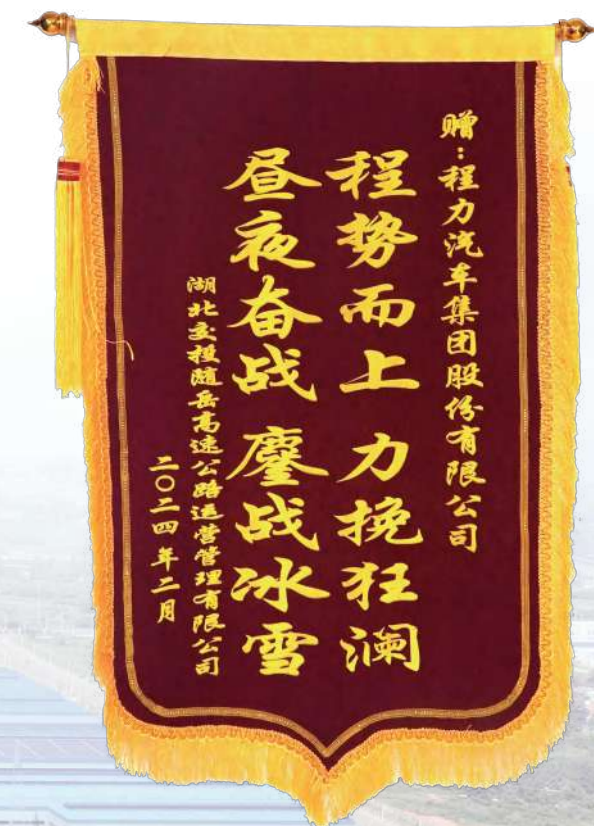 赠：程力汽车集团股份有限公司
程势而上 力挽狂澜
昼夜奋战 鏖战冰雪
湖北交投随岳高速公路运营管理有限公司
二〇二四年二月